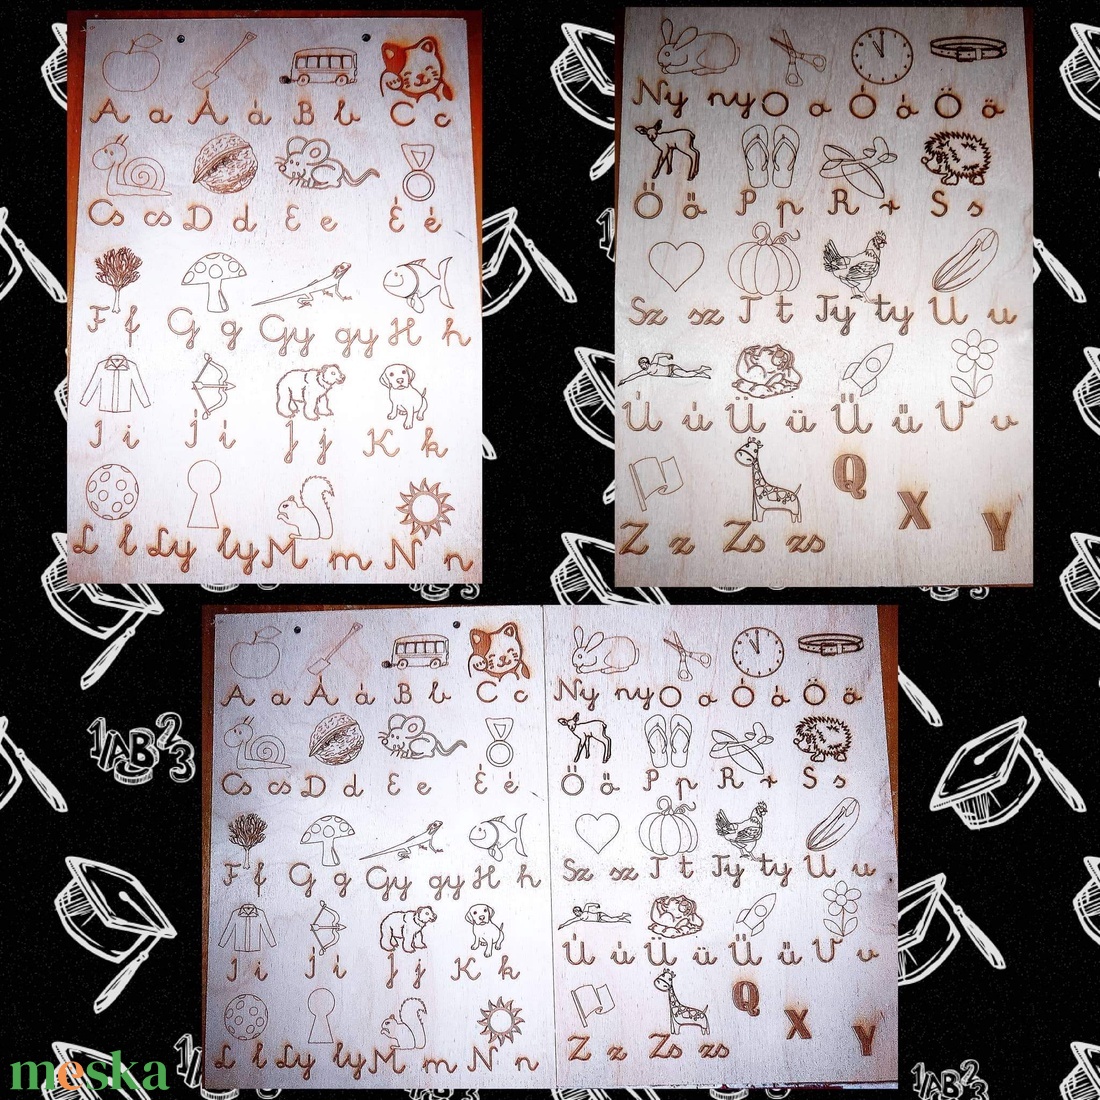 A a Á á B b C c
Cs cs D d E e É é
F f G g Gy gy H h
I i Í í J j K k
L l Ly ly M m N n
Ny ny O o Ó ó Ö ö
Ő ő P p R r S s
Sz sz T t Ty ty U u
Ú ú Ü ü Ű ű V v
Q
X
Y
Z z Zs zs
A a Á á B b C c
Cs cs D d E e É é
F f G g Gy gy H h
I i Í í J j K k
L l Ly ly M m N n
Ny ny O o Ó ó Ö ö
Ő ő P p R r S s
Sz sz T t Ty ty U u
Ú ú Ü ü Ű ű V v
Q
X
Y
Z z Zs zs
1AB23
meska
1AB23